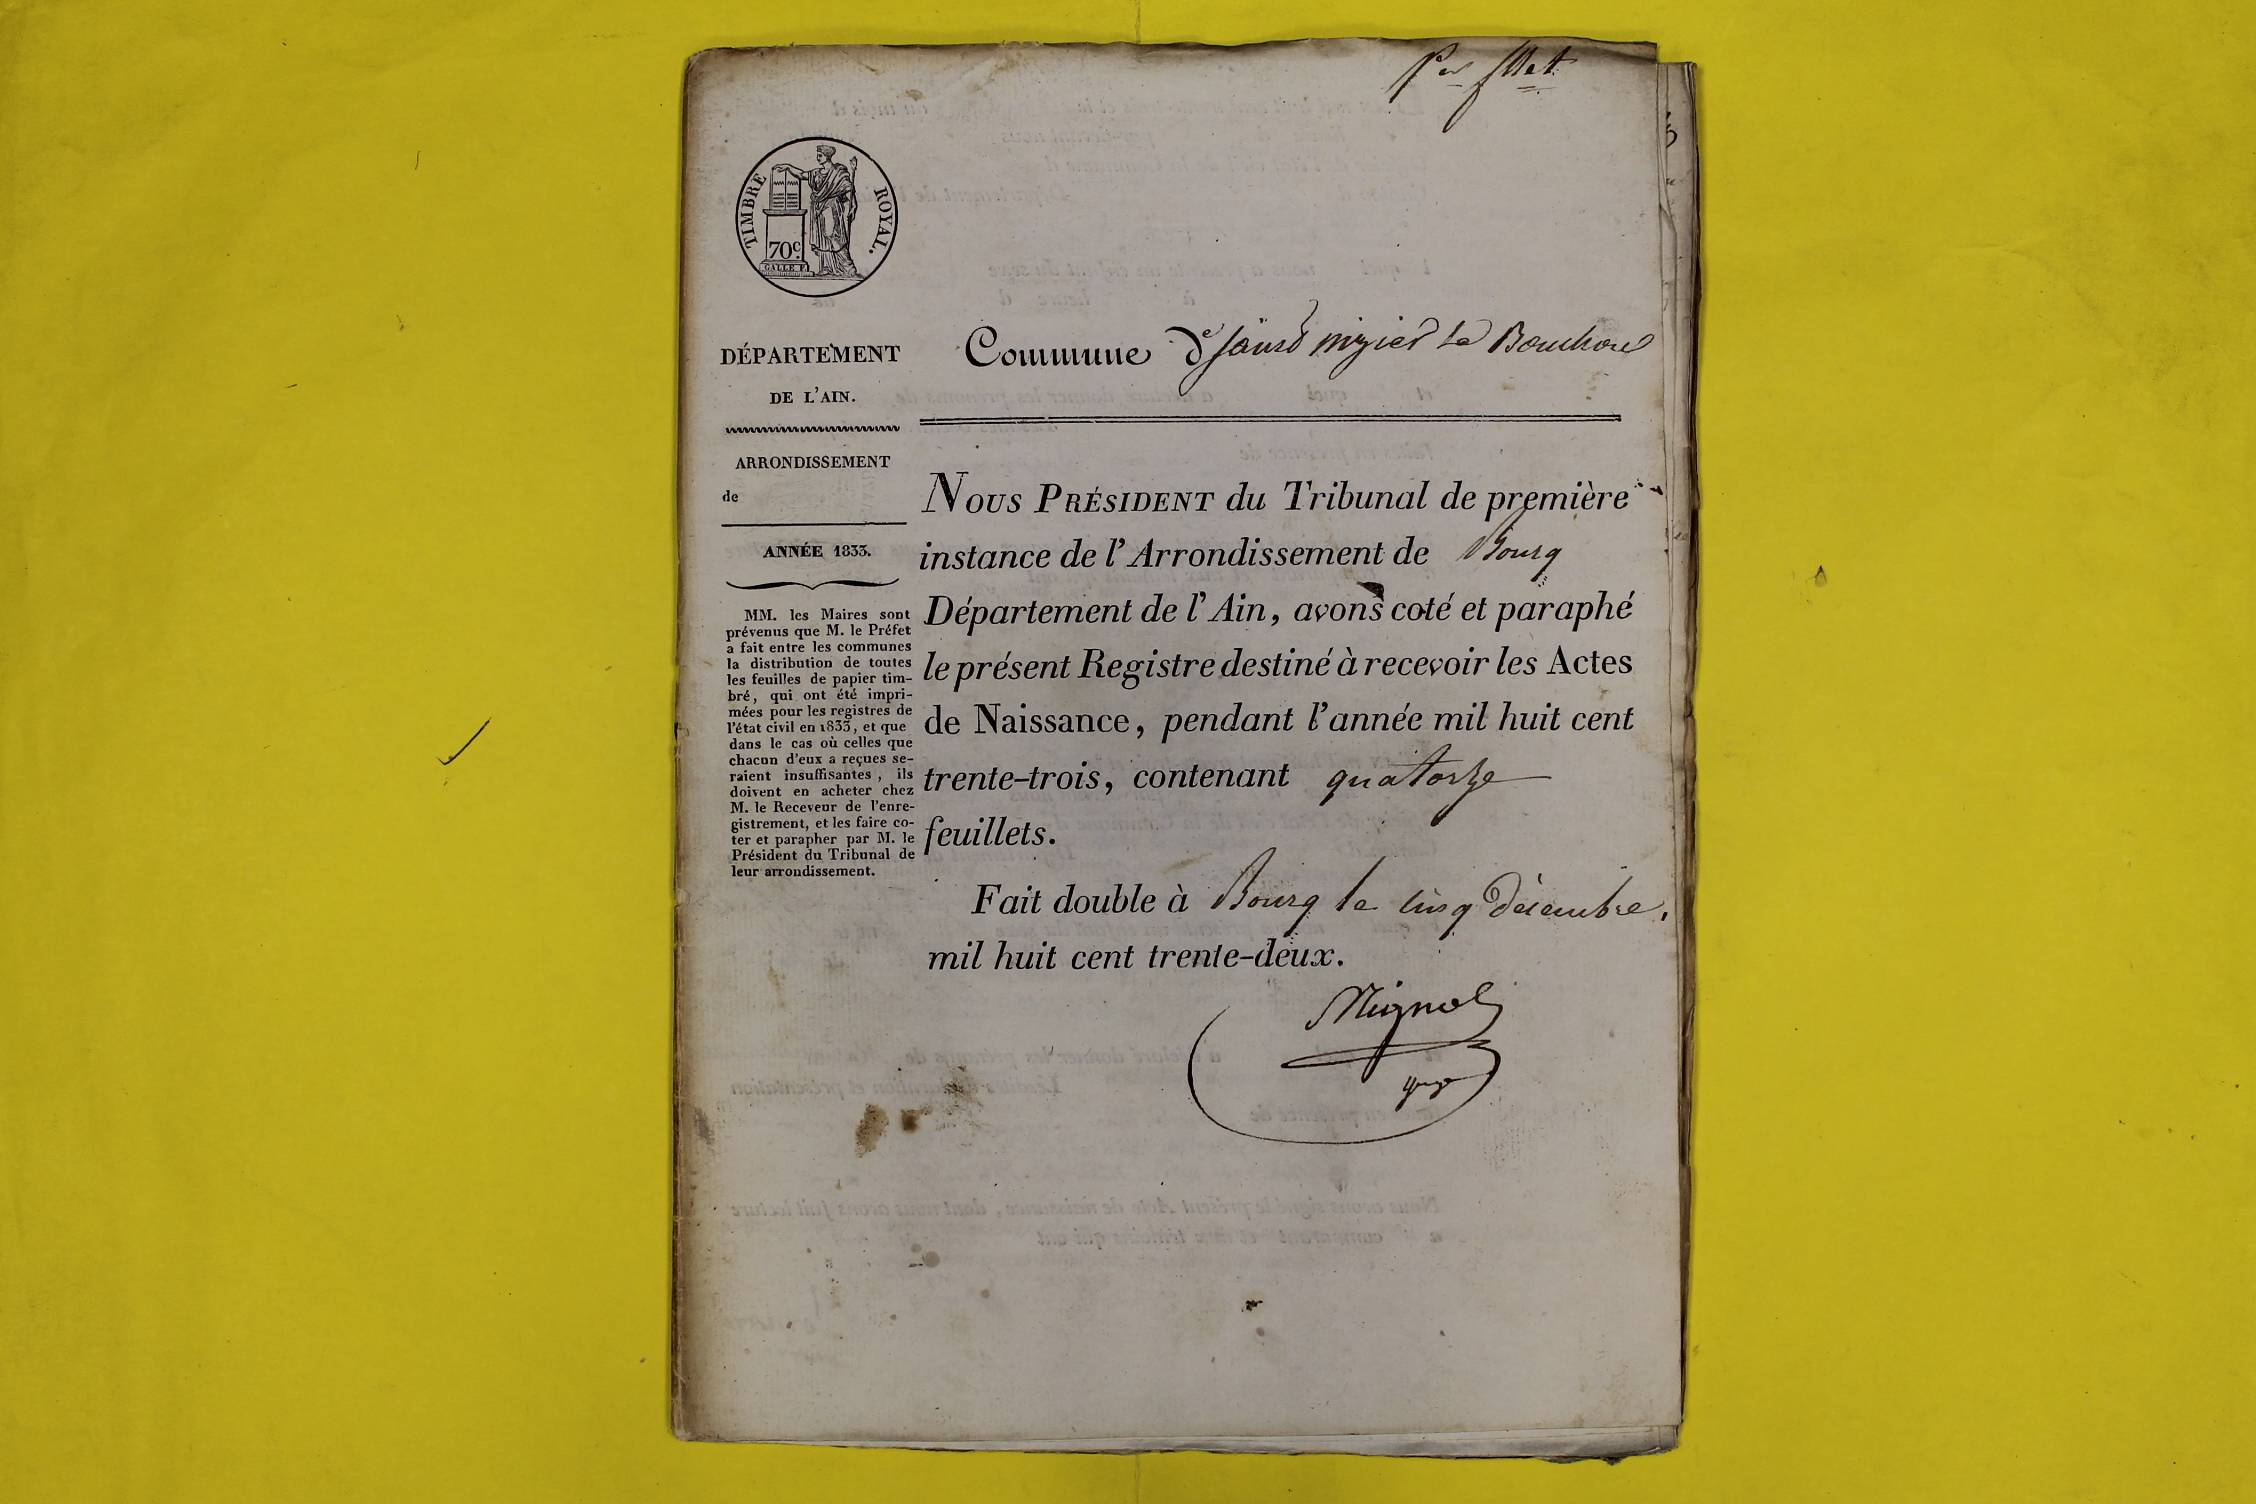 Per fllet
TIMBRE ROYAL.
70c.
GALLE F.
DÉPARTEMENT
DE L'AIN.
ARRONDISSEMENT
de
ANNÉE 1833.
MM. les Maires sont
prévenus que M. le Préfet
a fait entre les communes
la distribution de toutes
les feuilles de papier tim-
bré, qui ont été impri-
mées pour les registres de
l'état civil en 1833, et que
dans le cas où celles que
chacun d'eux a reçues se-
raient insuffisantes, ils
doivent en acheter chez
M. le Receveur de l'enre-
gistrement, et les faire co-
ter et parapher par M. le
Président du Tribunal de
leur arrondissement.
Commune de saint nizier le Bouchoux
NOUS PRÉSIDENT du Tribunal de première
instance de l'Arrondissement de Bourg
Département de l'Ain, avons coté et paraphé
le présent Registre destiné à recevoir les Actes
de Naissance, pendant l'année mil huit cent
trente-trois, contenant quatorze
feuillets.
Fait double à Bourg le cinq Décembre,
mil huit cent trente-deux.